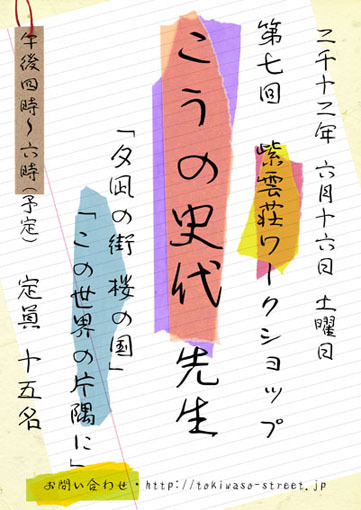 二千十二年 六月十六日 土曜日
第七回 紫雲荘ワークショップ
こうの史代 先生
「夕凪の街 桜の国」
「この世界の片隅に」
午後四時～六時(予定) 定員 十五名
お問い合わせ・http://tokiwaso-street.jp